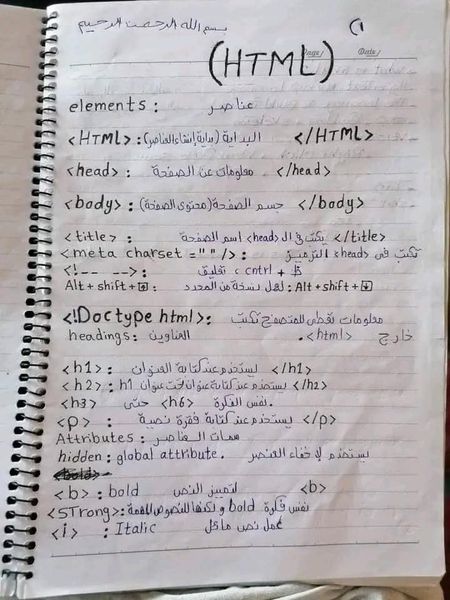 بسم الله الرحمن الرحيم
(1
Page/ Date/
(HTML)
elements : عناصر
<HTML> : البداية (بداية إنشاء العناصر) </HTML>
<head> : معلومات عن الصفحة </head>
<body> : جسم الصفحة (محتوى الصفحة) </body>
<title> : يكتب في ال <head> اسم الصفحة </title>
<meta charset = " " /> : تكتب في <head> الترميز
<!-- --> : تعليق ، cntrl + ظ
Alt + shift + ↓ : لعمل نسخة من المحدد : Alt + shift + ↓
<!Doctype html> : معلومات تعطى للمتصفح تكتب
خارج <html>.
headings : العناوين
<h1> : يستخدم عند كتابة العنوان </h1>
<h2> : يستخدم عند كتابة عنوان تحت عنوان h1 </h2>
<h3> حتى <h6> نفس الفكرة.
<p> : يستخدم عند كتابة فقرة نصية </p>
Attributes : سمات العناصر
hidden : global attribute. يستخدم لإخفاء العنصر
<b> : bold لتمييز النص <b>
<STrong> : نفس فكرة bold ولكنها للنصوص المهمة
<i> : Italic عمل نص مائل